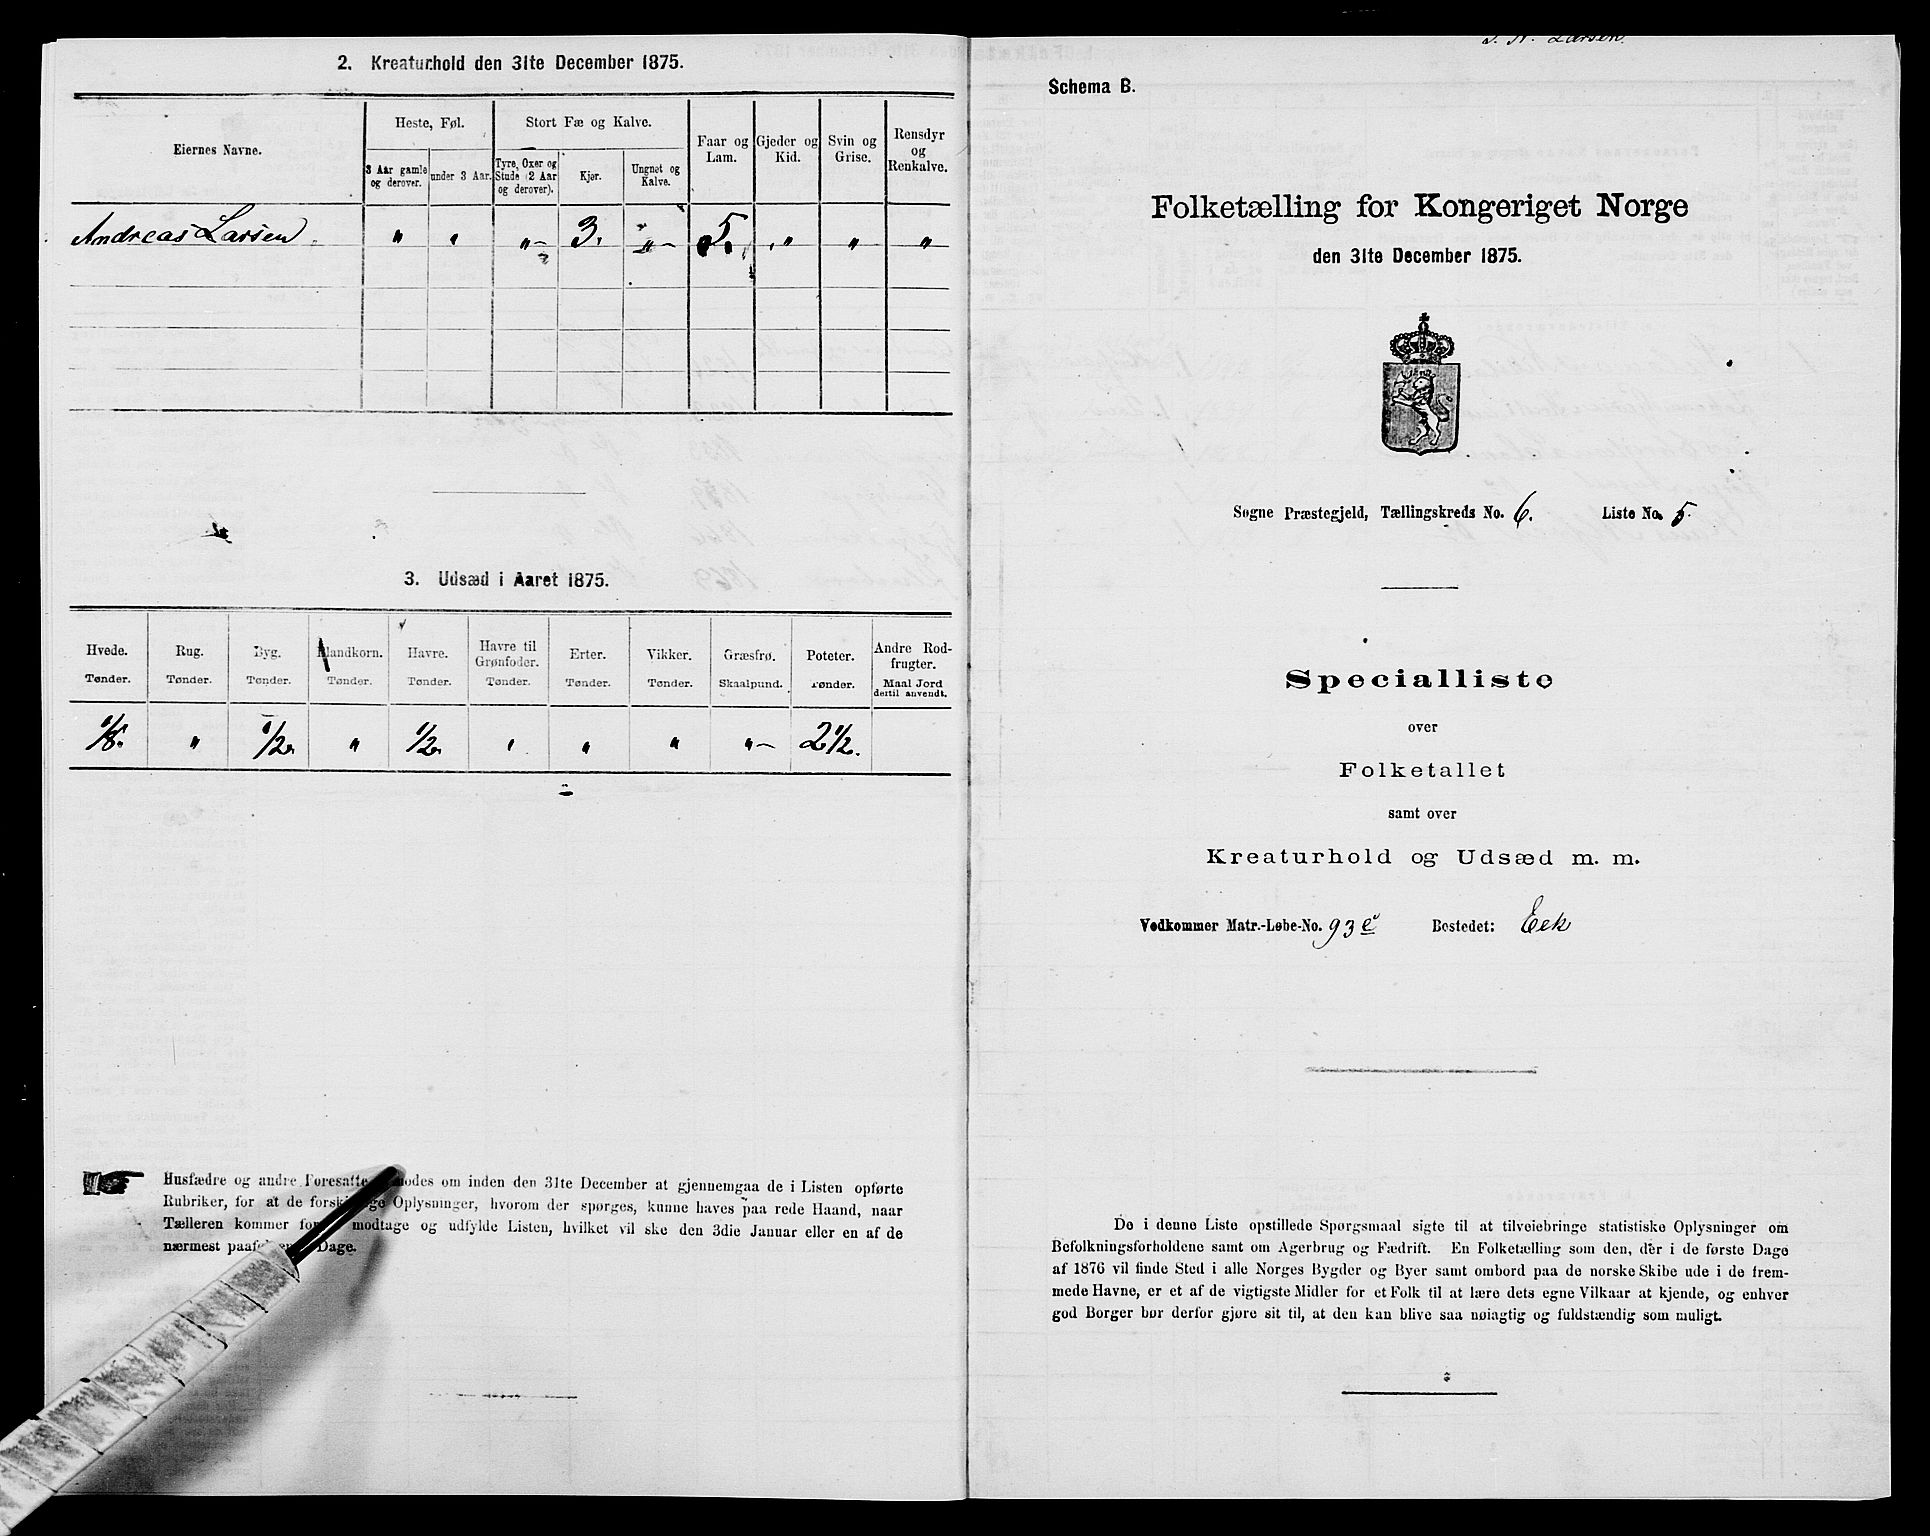 2. Kreaturhold den 31te December 1875.
Eiernes Navne.
Heste, Føl.
3 Aar gamle og derover.
under 3 Aar.
Stort Fæ og Kalve.
Tyre, Oxer og Stude (2 Aar og derover).
Kjør.
Ungnøt og Kalve.
Faar og Lam.
Gjeder og Kid.
Svin og Grise.
Rensdyr og Renkalve.
Andreas Larsen. " " "- 3. "- 5. " " "
3. Udsæd i Aaret 1875.
Hvede. Rug. Byg. Blandkorn. Havre. Havre til Grønfoder. Erter. Vikker. Græsfrø. Poteter. Andre Rodfrugter.
Tønder. Tønder. Tønder. Tønder. Tønder. Tønder. Tønder. Tønder. Skaalpund. Tønder. Maal Jord dertil anvendt.
1/8. " 1/2. " 1/2. " " " "- 2 1/2.
Husfædre og andre Foresatte
modes om inden den 31te December at gjennemgaa de i Listen opførte
Rubriker, for at de
Oplysninger, hvorom der spørges, kunne haves paa rede Haand, naar
Tælleren kommer for
modtage og udfylde Listen, hvilket vil ske den 3die Januar eller en af de
nærmest
Dage.
Larsen
Schema B.
Folketælling for Kongeriget Norge
den 31te December 1875.
Sogne Præstegjeld, Tællingskreds No. 6. Liste No. 5.
Specialliste
over
Folketallet
samt over
Kreaturhold og Udsæd m. m.
Vedkommer Matr.-Løbe-No. 93 e Bostedet: Eek
De i denne Liste opstillede Spørgsmaal sigte til at tilveiebringe statistiske Oplysninger om
Befolkningsforholdene samt om Agerbrug og Fædrift. En Folketælling som den, der i de første Dage
af 1876 vil finde Sted i alle Norges Bygder og Byer samt ombord paa de norske Skibe ude i de frem-
mede Havne, er et af de vigtigste Midler for et Folk til at lære dets egne Vilkaar at kjende, og enhver
god Borger bør derfor gjøre sit til, at den kan blive saa nøiagtig og fuldstændig som muligt.